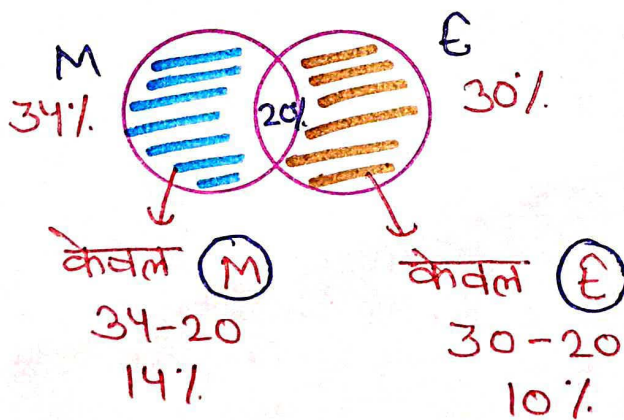 M
34%
20%
E
30%
केवल M
34-20
14%
केवल E
30-20
10%